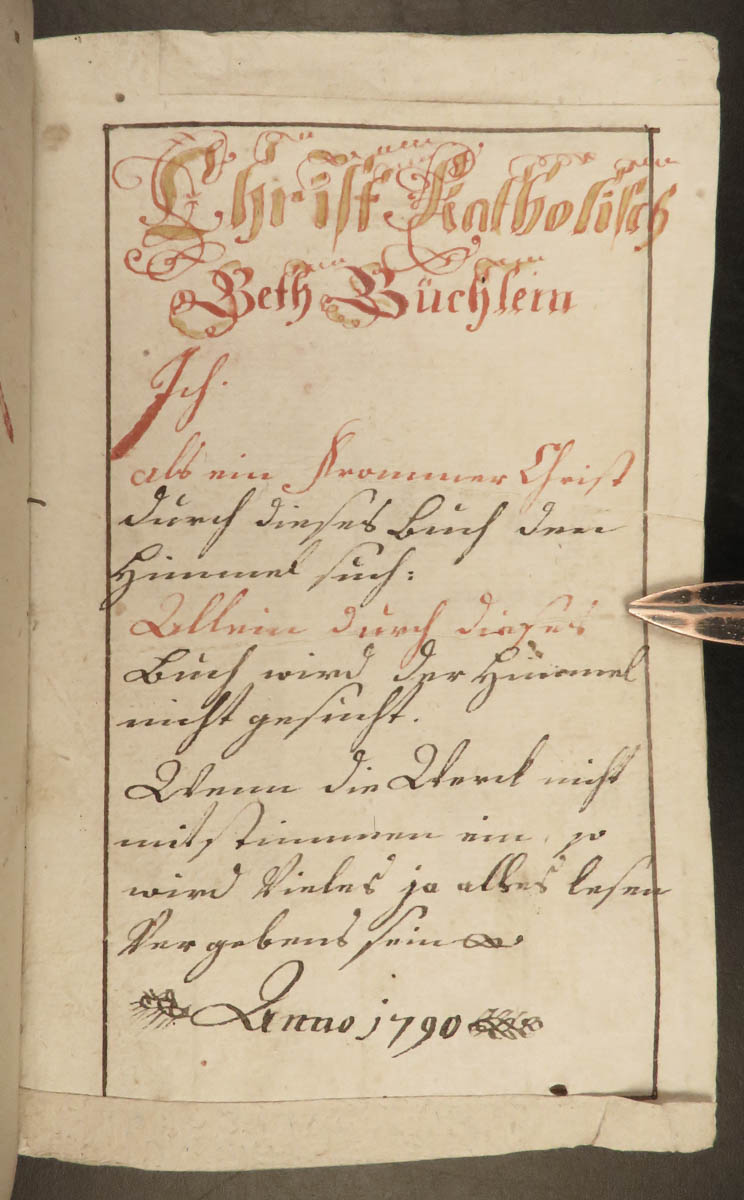 Christ Katholisch
Beth Büchlein
Ich.
als ein Frommer Christ
durch dieses Buch den
Himmel such:
Allein durch dieses
Buch wird der Himmel
nicht gesucht.
Wenn die Werck nicht
mit stimmen ein, so
wird Vieles ja alles lesen
Vergebens sein
Anno 1790